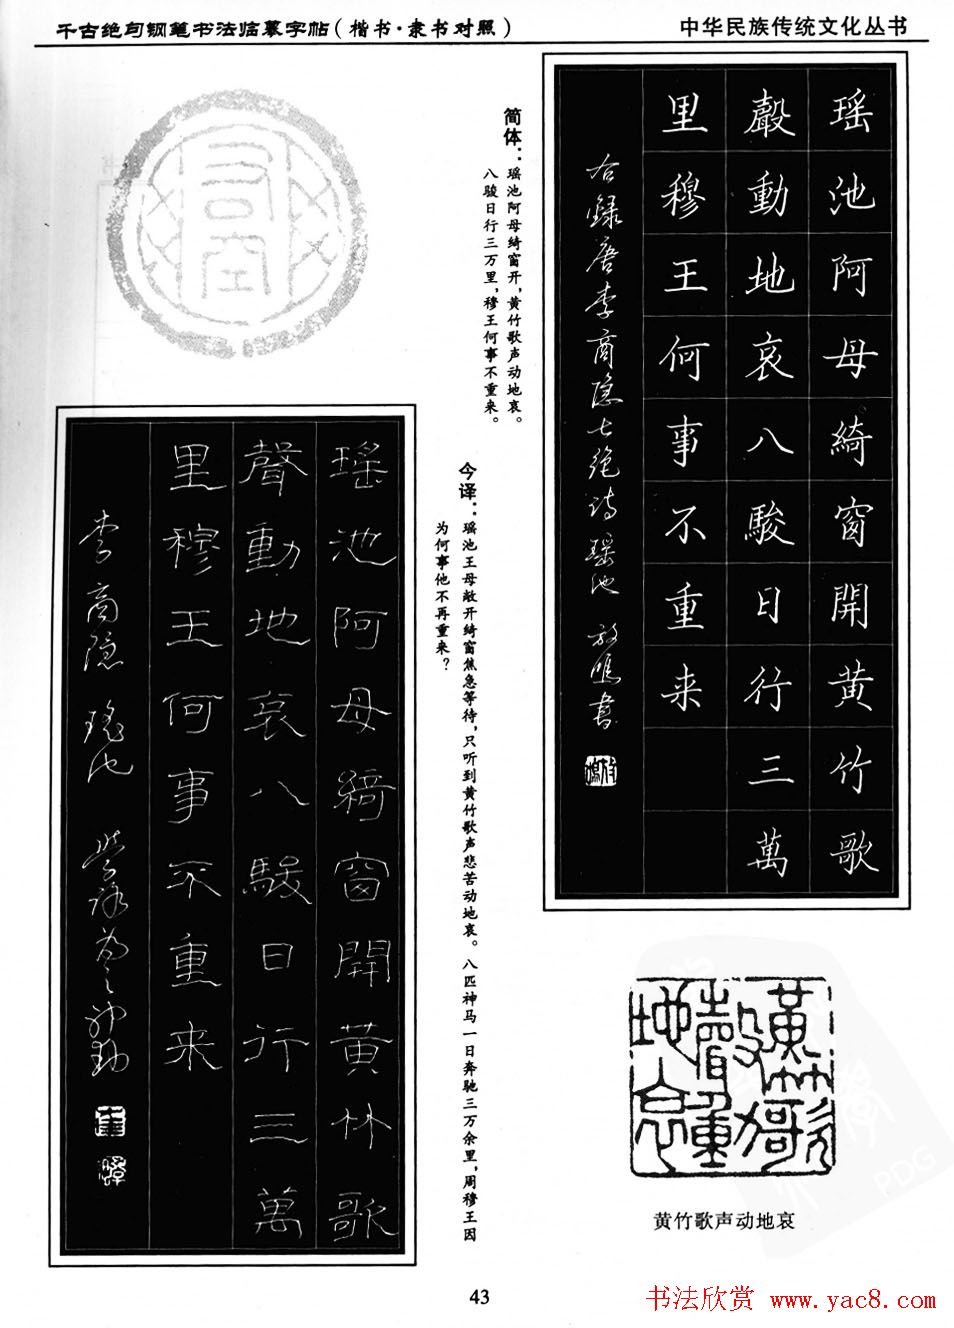 千古绝句钢笔书法临摹字帖(楷书·隶书对照)
中华民族传统文化丛书
瑶池阿母綺窗開黄竹歌
聲動地哀八駿日行三萬
里穆王何事不重来
右錄唐李商隐七绝诗瑶池
简体：瑶池阿母绮窗开，黄竹歌声动地哀。
八骏日行三万里，穆王何事不重来。
今译：瑶池王母敞开绮窗焦急等待，只听到黄竹歌声悲苦动地哀。八匹神马一日奔驰三万余里，周穆王因
为何事他不再重来？
瑶池阿母綺窗開黄竹歌
聲動地哀八駿日行三萬
里穆王何事不重来
李商隐 瑶池
黄竹歌聲動地哀
黄竹歌声动地哀
43
书法欣赏 www.yac8.com
PDG